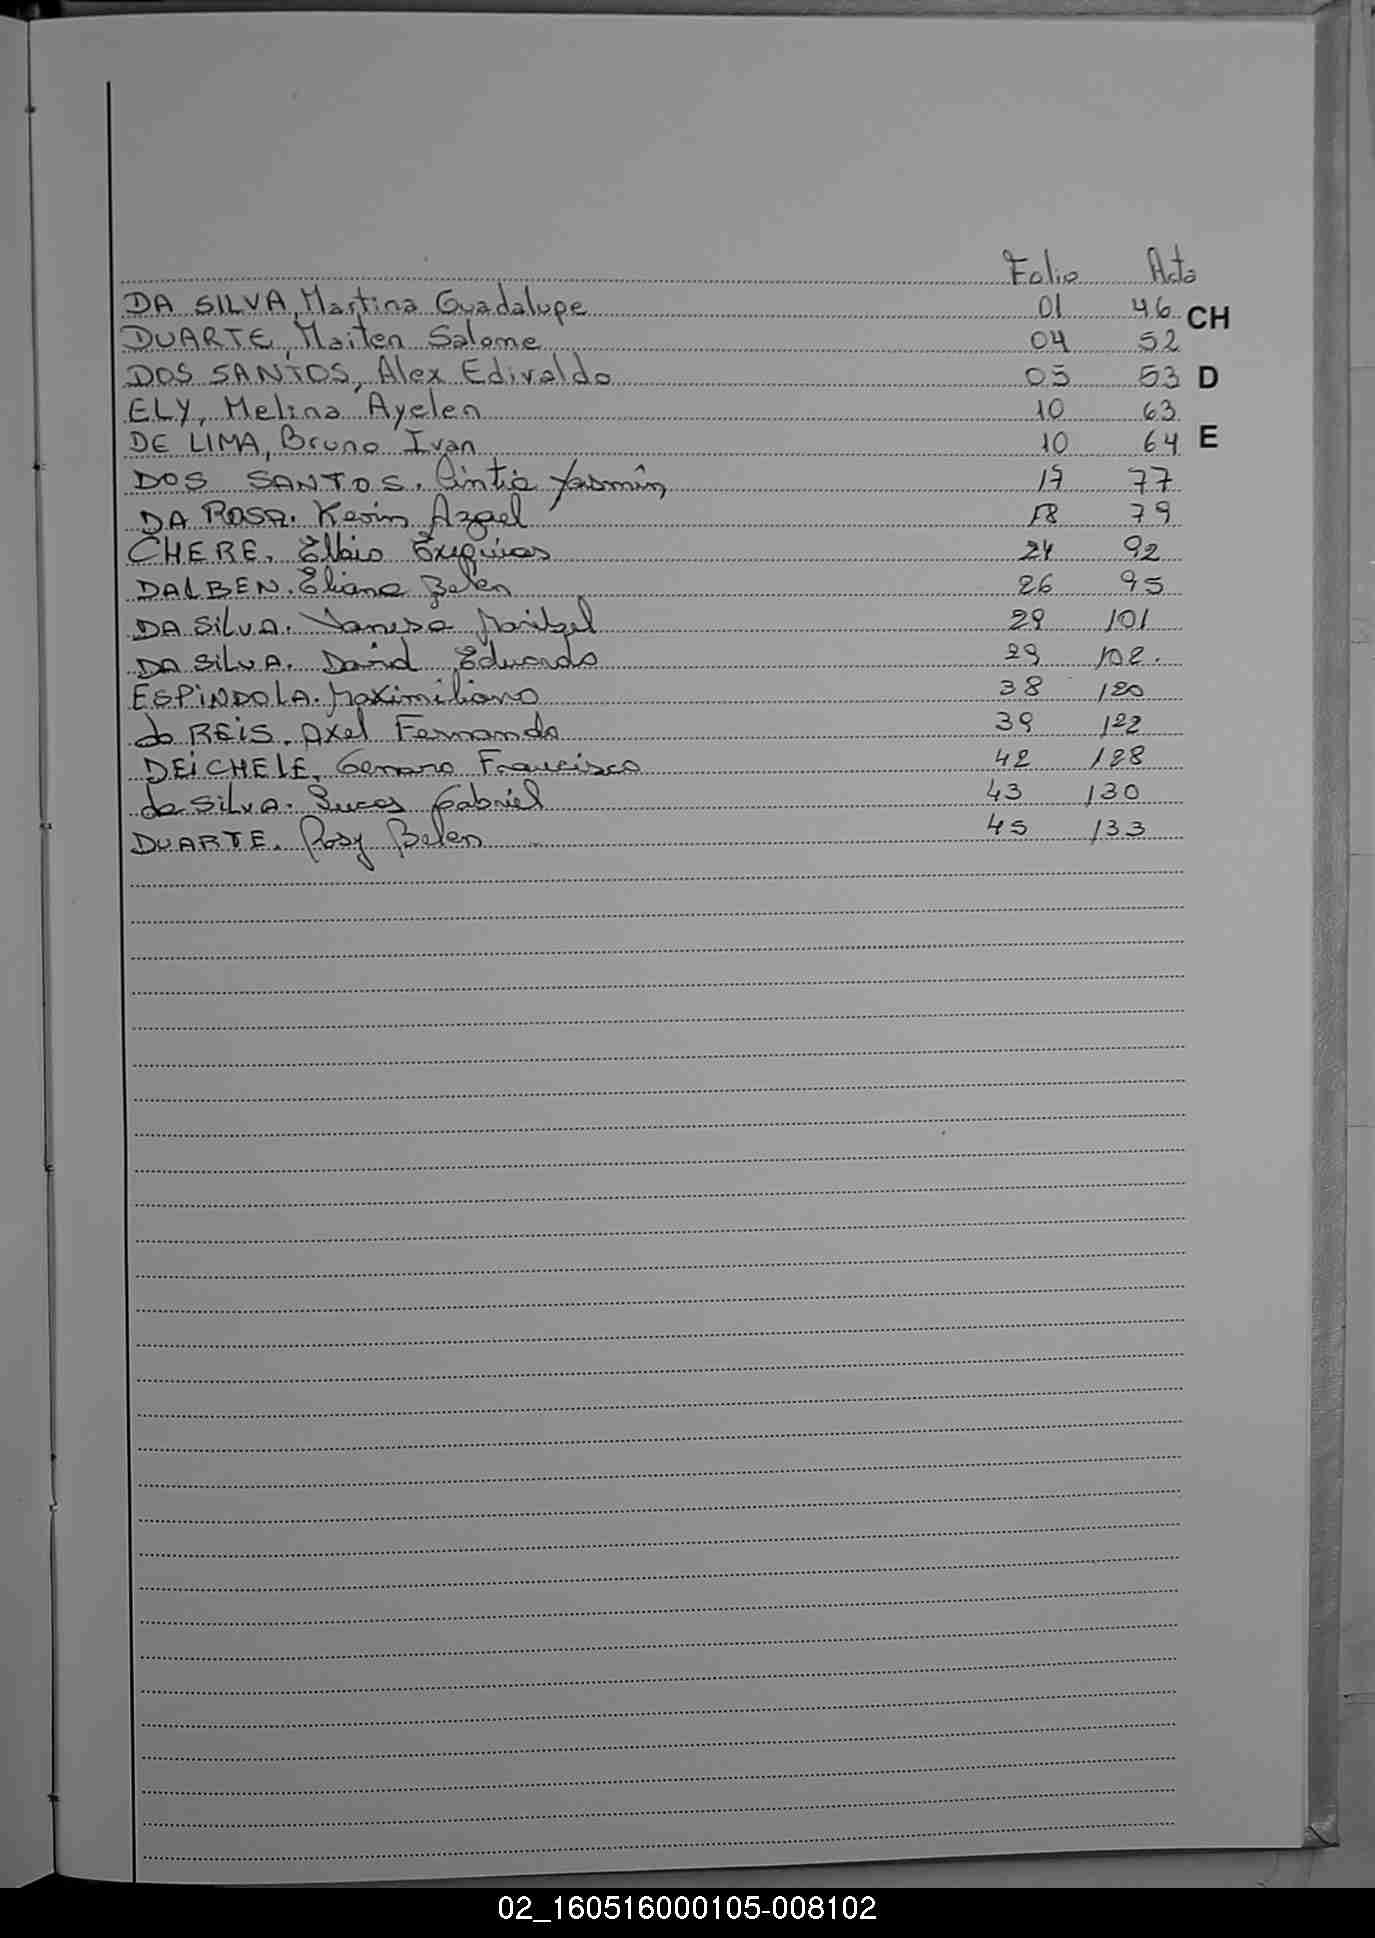 Folio Acta
DA SILVA, Martina Guadalupe 01 46 CH
DUARTE, Maiten Salome 04 52
DOS SANTOS, Alex Edivaldo 05 53 D
ELY, Melina Ayelen 10 63
DE LIMA, Bruno Ivan 10 64 E
DOS SANTOS. Cintia Yasmin 17 77
DA ROSA. Kevin Azael 18 79
CHERE. Exequias 24 92
DALBEN. Eliana Belen 26 95
DA SILVA. Vanesa Maribel 29 101
DA SILVA. David Eduardo 29 102.
ESPINDOLA. Maximiliano 38 120
do REIS. Axel Fernando 39 122
DEICHELE, Genaro Francisco 42 128
da SILVA. Lucas Gabriel 43 130
DUARTE. Rosy Belen 45 133
02_160516000105-008102